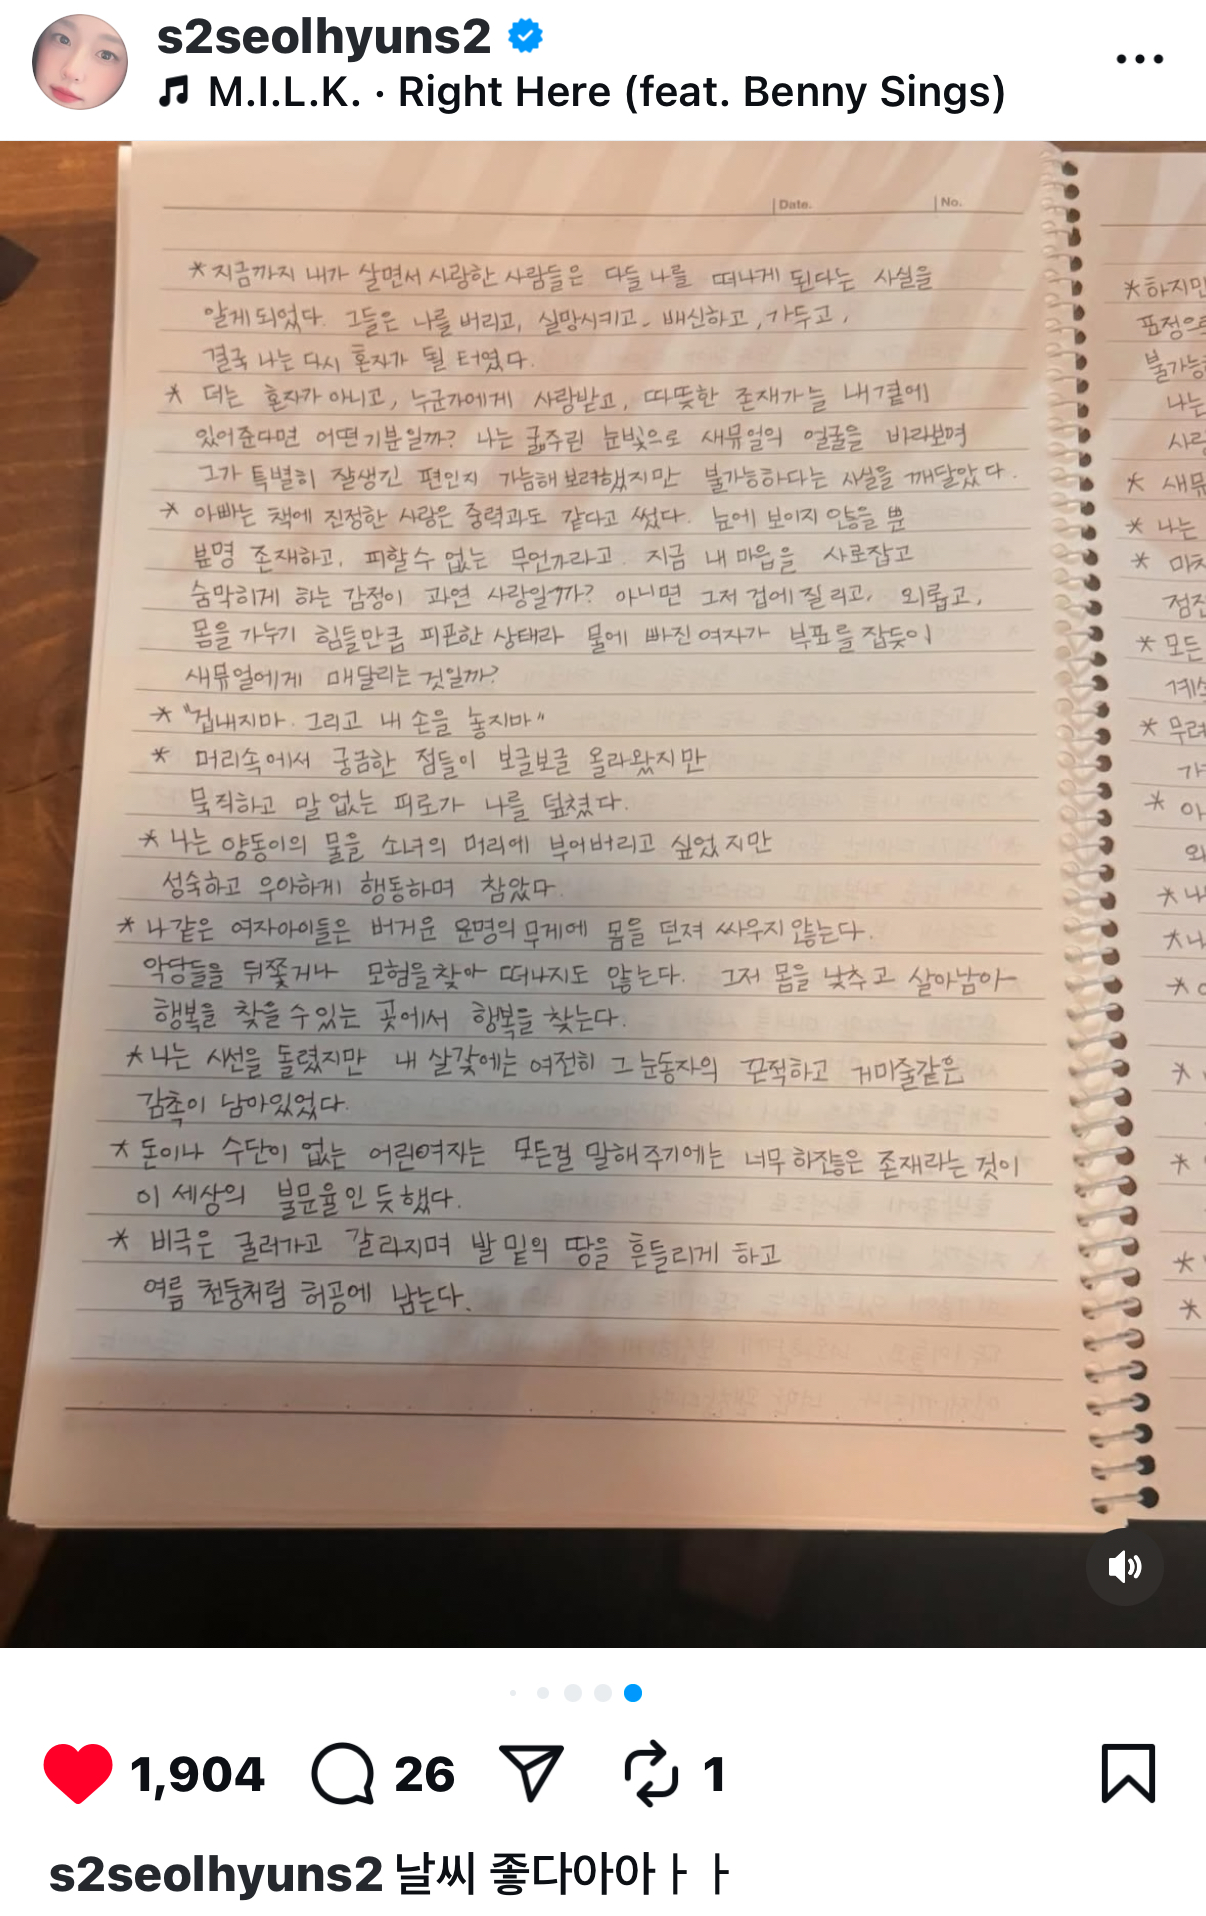 s2seolhyuns2
M.I.L.K. · Right Here (feat. Benny Sings)
Date.
No.
* 지금까지 내가 살면서 사랑한 사람들은 다들 나를 떠나게 된다는 사실을
알게되었다. 그들은 나를 버리고, 실망시키고, 배신하고, 가두고,
결국 나는 다시 혼자가 될 터였다.
* 더는 혼자가 아니고, 누군가에게 사랑받고, 따뜻한 존재가 늘 내 곁에
있어준다면 어떤기분일까? 나는 굶주린 눈빛으로 새뮤얼의 얼굴을 바라보며
그가 특별히 잘생긴 편인지 가늠해보려했지만 불가능하다는 사실을 깨달았다.
* 아빠는 책에 진정한 사랑은 중력과도 같다고 썼다. 눈에 보이지 않을 뿐
분명 존재하고, 피할수 없는 무언가라고. 지금 내 마음을 사로잡고
숨막히게 하는 감정이 과연 사랑일까? 아니면 그저 겁에 질리고, 외롭고,
몸을 가누기 힘들만큼 피곤한 상태라 물에 빠진 여자가 부표를 잡듯이
새뮤얼에게 매달리는 것일까?
* "겁내지마. 그리고 내 손을 놓지마"
* 머리속에서 궁금한 점들이 보글보글 올라왔지만
묵직하고 말 없는 피로가 나를 덮쳤다.
* 나는 양동이의 물을 소녀의 머리에 부어버리고 싶었지만
성숙하고 우아하게 행동하며 참았다.
* 나같은 여자아이들은 버거운 운명의 무게에 몸을 던져 싸우지 않는다.
악당들을 뒤쫓거나 모험을 찾아 떠나지도 않는다. 그저 몸을 낮추고 살아남아
행복을 찾을 수 있는 곳에서 행복을 찾는다.
* 나는 시선을 돌렸지만 내 살갗에는 여전히 그 눈동자의 끈적하고 거미줄같은
감촉이 남아있었다.
* 돈이나 수단이 없는 어린여자는 모든걸 말해주기에는 너무 하찮은 존재라는 것이
이 세상의 불문율인 듯했다.
* 비극은 굴러가고 갈라지며 발 밑의 땅을 흔들리게 하고
여름 천둥처럼 허공에 남는다.
* 하지만
표정으로
불가능
나는
사랑
* 새뮤
* 나는
* 마치
점진
* 모든
계속
* 무려
* 아
1,904
26
1
s2seolhyuns2 날씨 좋다아아ㅏㅏ